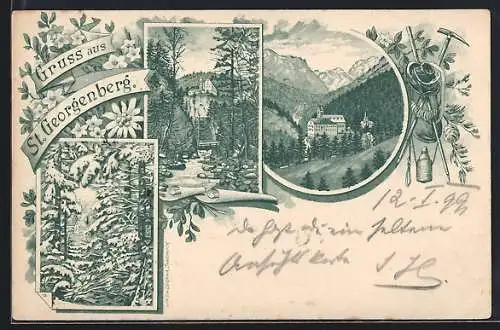 Gruss aus
St. Georgenberg.
12-I.99
da hast du ein seltene
Ansichtkarte